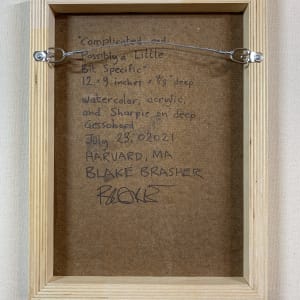 "Complicated and
Possibly a Little
Bit Specific"
12 x 9 inches x 7/8" deep
watercolor, acrylic,
and Sharpie on deep
Gessobord
July 23, 02021
HARVARD, MA
BLAKE BRASHER